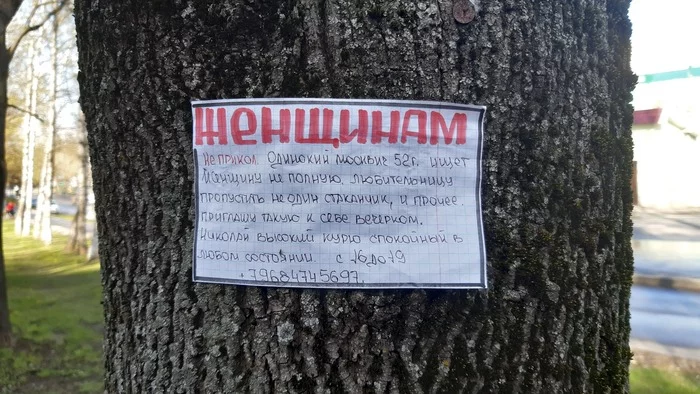 ЖЕНЩИНАМ
Не прикол. Одинокий москвич 52г. ищет
женщину не полную. любительницу
пропустить не один стаканчик, и прочее.
приглашу такую к себе вечерком.
николай высокий курю спокойный в
любом состоянии. с 16 до 19
79684745697